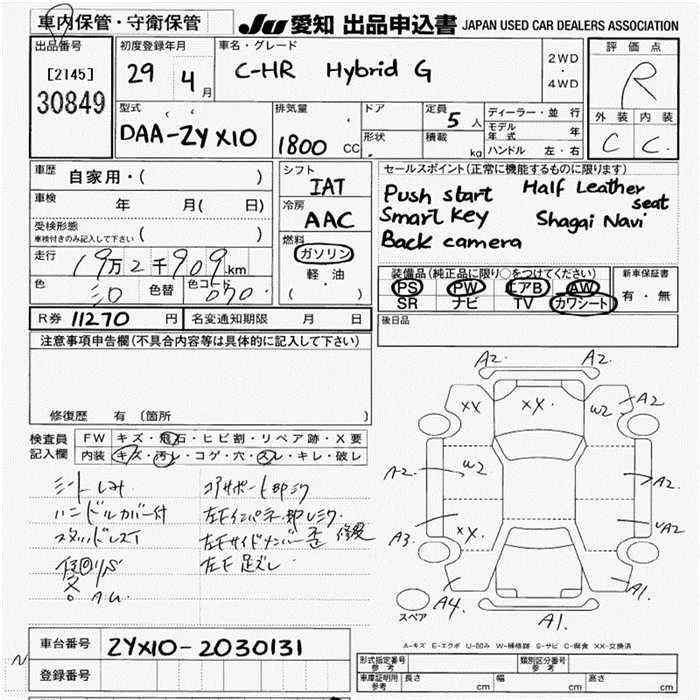 車内保管・守衛保管
JU 愛知 出品申込書 JAPAN USED CAR DEALERS ASSOCIATION
出品番号
[2145]
30849
初度登録年月
29 4月
車名・グレード
C-HR Hybrid G
2WD
・
4WD
評価点
R
外装 内装
C C
型式
DAA-ZYX10
排気量
1800 CC
ドア
形状
定員 5人
積載 kg
ディーラー・並行
モデル年式 年
ハンドル 左・右
車歴 自家用・( )
車検 年 月( 日)
受検形態
車検付きのみ記入して下さい ( )
走行 19万2千909km
色 色替 色コード 070
シフト
IAT
冷房
AAC
燃料
ガソリン
軽・油
( )
セールスポイント(正常に機能するものに限ります)
Push start Half Leather seat
Smart Key Shagai Navi
Back camera
装備品(純正品に限り○をつけてください)
PS PW エアB AW
SR ナビ TV カワシート
新車保証書
有・無
R券 11270 円 名変通知期限 月 日
後日品
注意事項申告欄(不具合内容等は具体的に記入して下さい)
修復歴 有 (箇所 )
検査員記入欄
FW キズ・飛石・ヒビ割・リペア跡・X要
内装 キズ・汚レ・コゲ・穴・スレ・キレ・破レ
シートしみ
ハンドルカバー付
コアサポート部シワ
左F足ズレ
A2. A2.
XX XX. W2 A2
A2. W2 A2
A3. XX. A2
A4. A1. A1.
スペア
A-キズ E-エクボ U-凹み W-補修跡 S-サビ C-腐食 XX-交換済
車台番号 ZYX10-2030131
登録番号
形式指定番号 参考
類別区分番号 参考
車庫証明用 参考 長さ cm 幅 cm 高さ cm